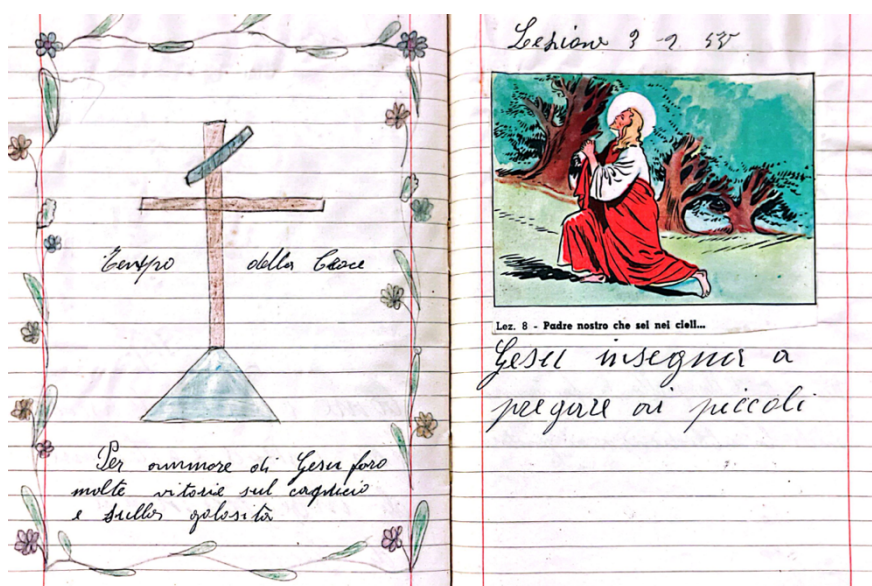 Tempo della Croce
Per ammore di Gesu faro
molte vitorie sul capricio
e sulla golosità
Lezione 3 -2
Lez. 8 - Padre nostro che sei nei cieli...
Gesu insegna a
pregare ai piccoli